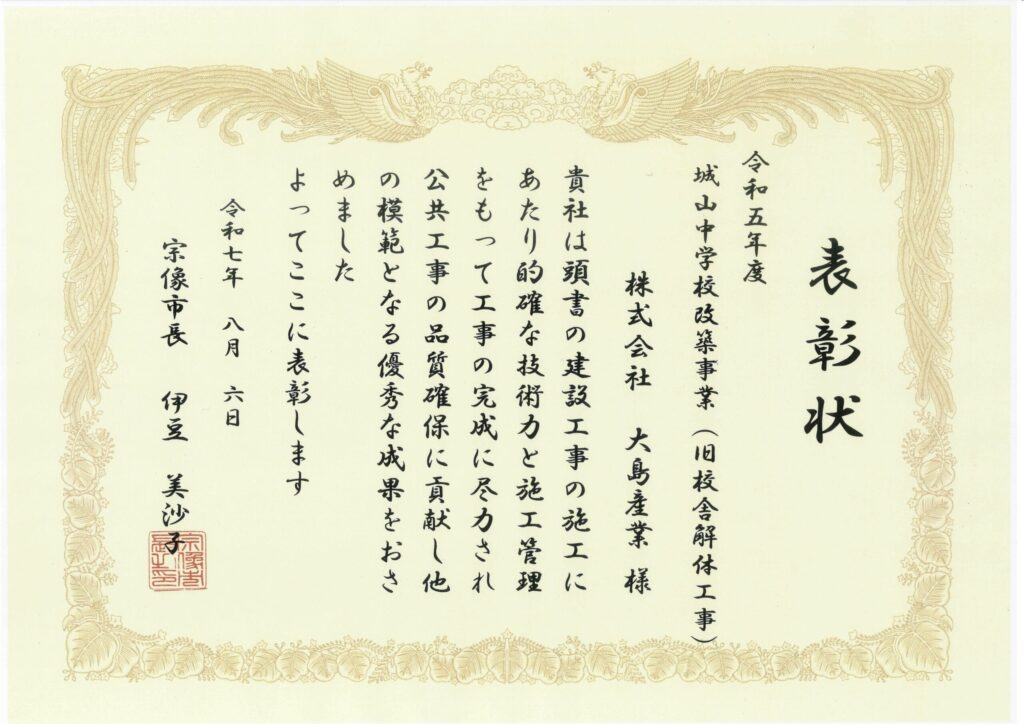 表彰状
令和五年度
城山中学校改築事業（旧校舎解体工事）
株式会社　大島産業　様
貴社は頭書の建設工事の施工に
あたり的確な技術力と施工管理
をもって工事の完成に尽力され
公共工事の品質確保に貢献し他
の模範となる優秀な成果をおさ
めました
よってここに表彰します
令和七年　八月　六日
宗像市長　伊豆　美沙子
宗像市長之印